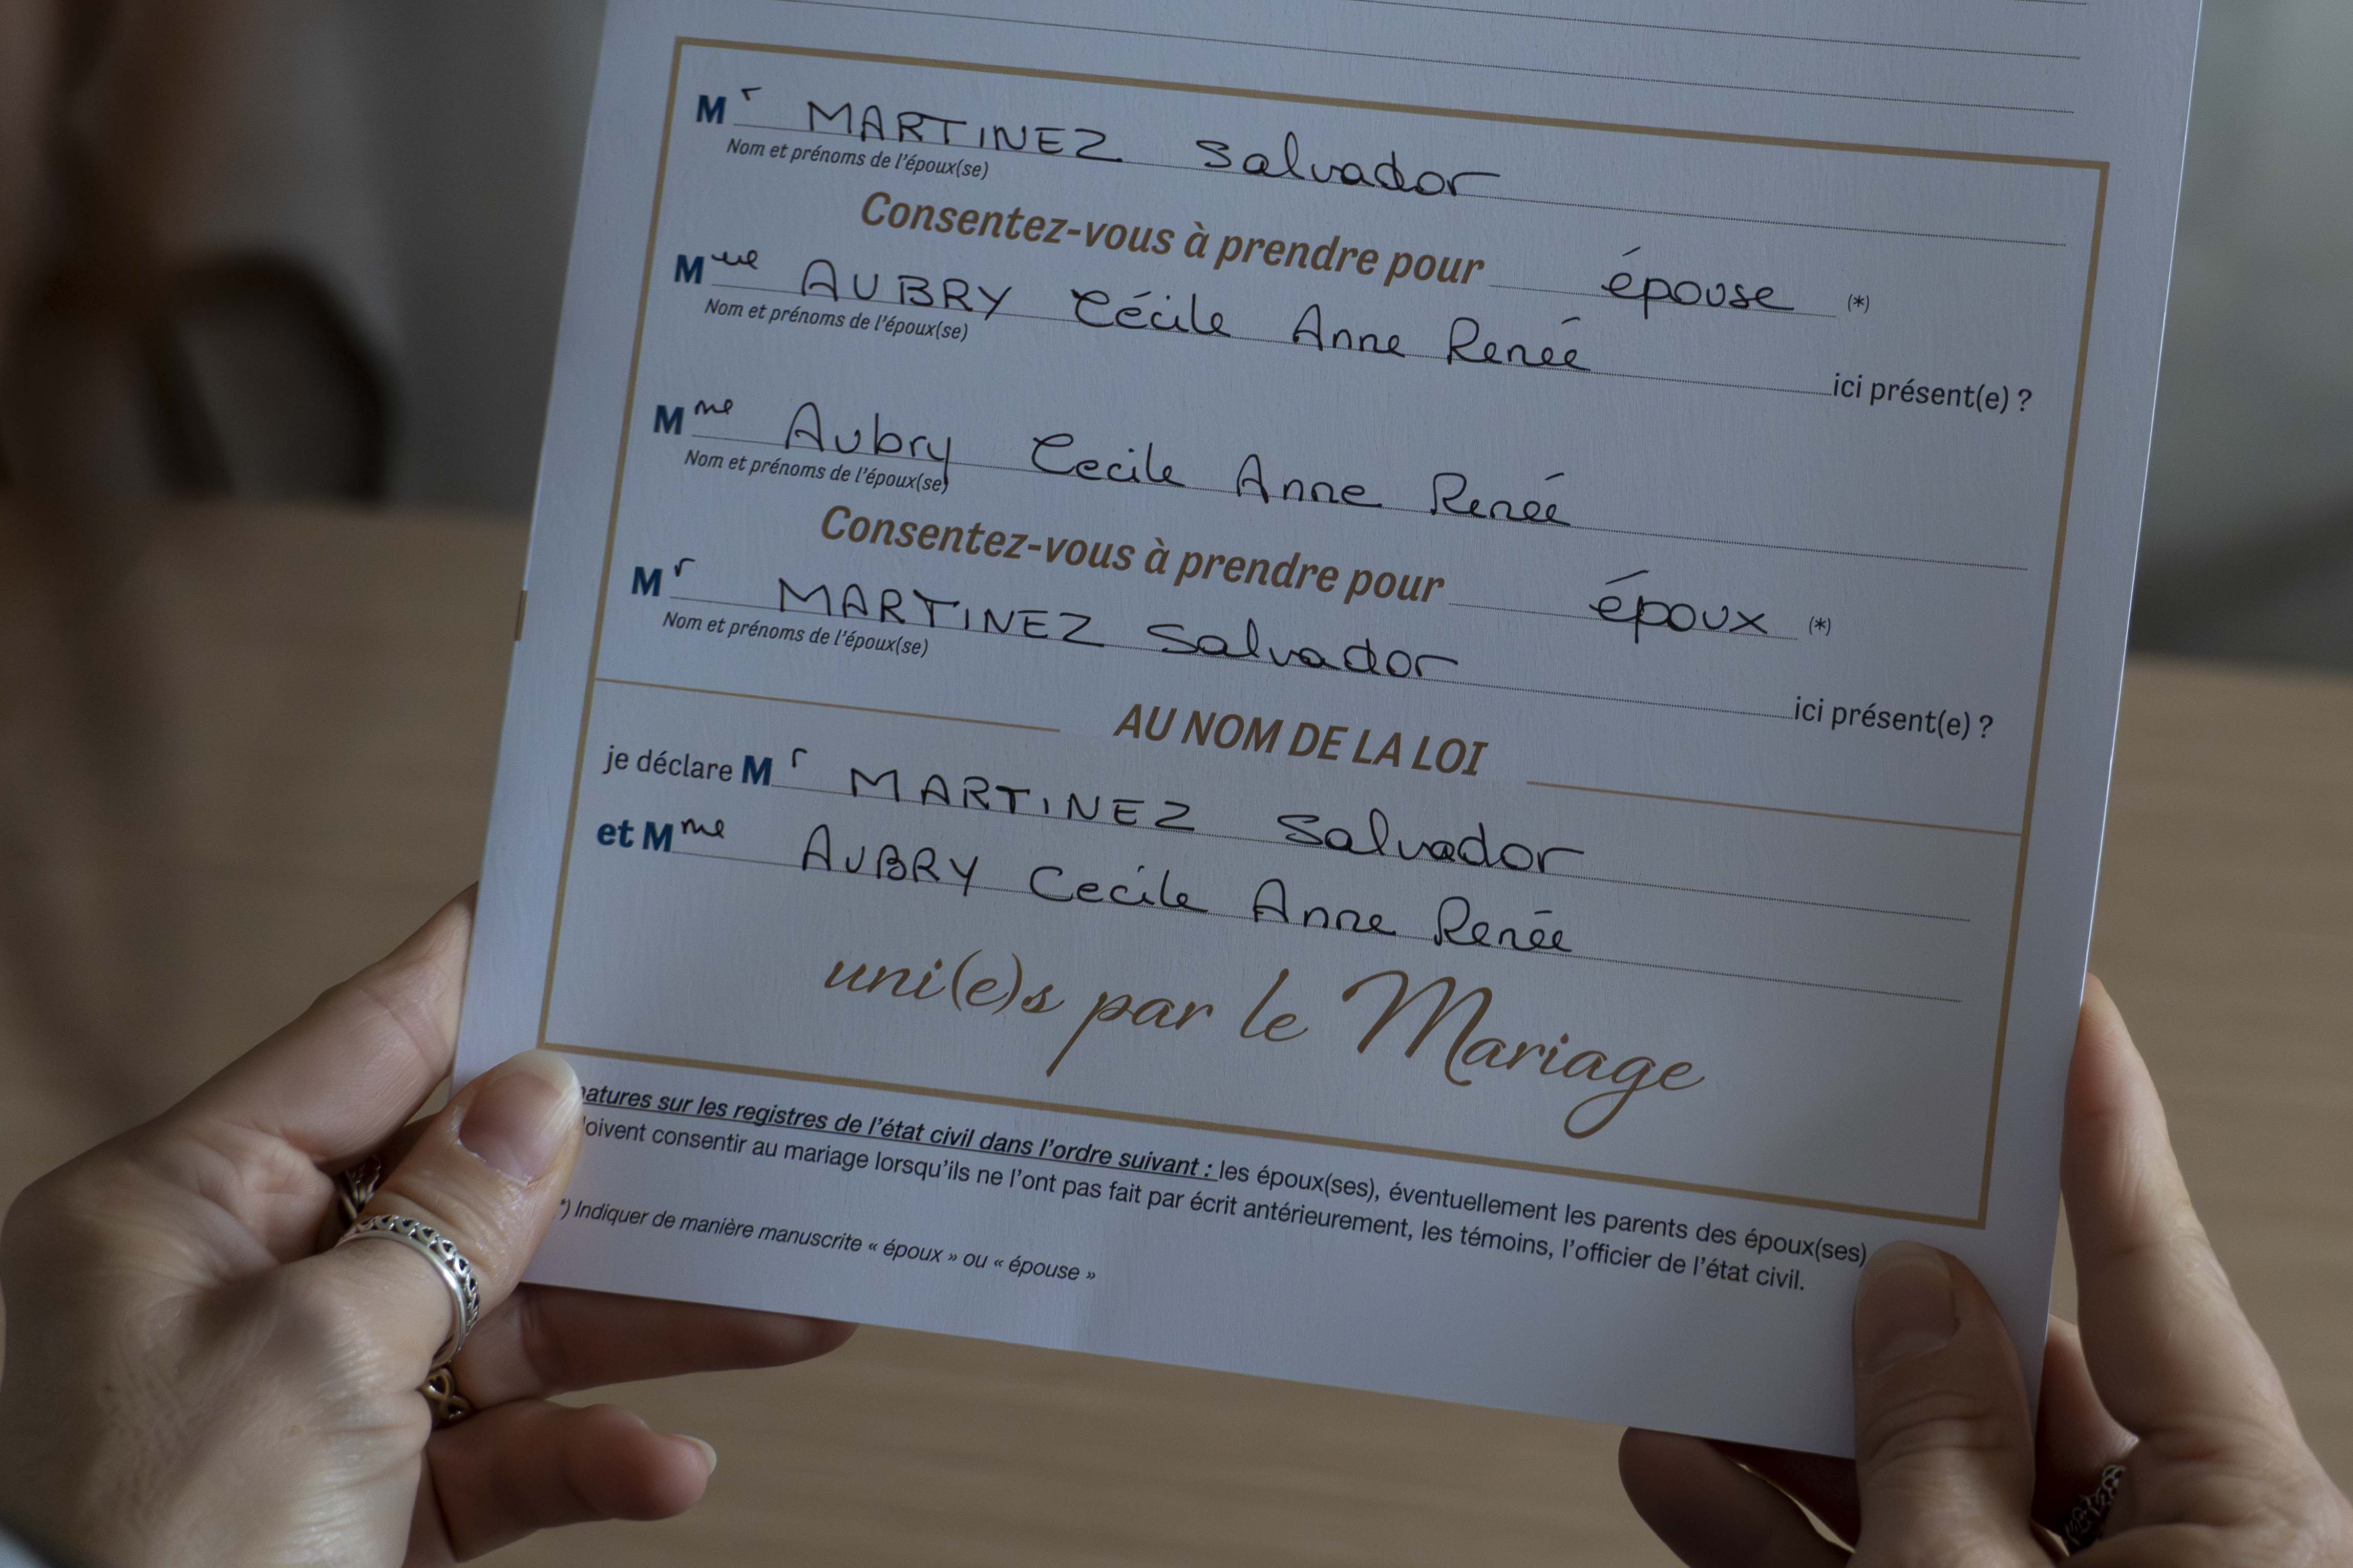 Mr MARTINEZ Salvador
Nom et prénoms de l'époux(se)
Consentez-vous à prendre pour épouse (*)
Mme AUBRY Cécile Anne Renée ici présent(e) ?
Nom et prénoms de l'époux(se)
Mme Aubry Cecile Anne Renée
Nom et prénoms de l'époux(se)
Consentez-vous à prendre pour époux (*)
Mr MARTINEZ Salvador ici présent(e) ?
Nom et prénoms de l'époux(se)
AU NOM DE LA LOI
je déclare Mr MARTINEZ Salvador
et Mme AUBRY Cecile Anne Renée
uni(e)s par le Mariage
natures sur les registres de l'état civil dans l'ordre suivant : les époux(ses), éventuellement les parents des époux(ses)
doivent consentir au mariage lorsqu'ils ne l'ont pas fait par écrit antérieurement, les témoins, l'officier de l'état civil.
*) Indiquer de manière manuscrite « époux » ou « épouse »